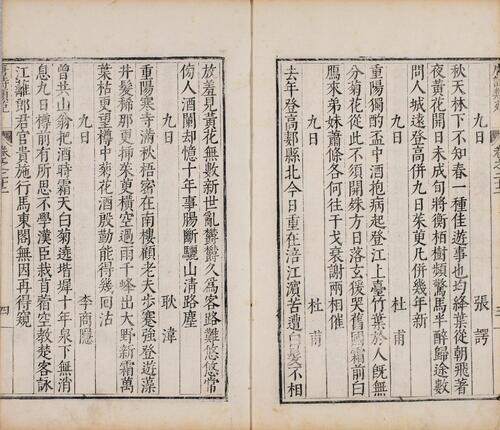 九日 張諤
秋天林下不知春一種佳遊事也均絳葉從朝飛著
夜黃花開日未成旬將衡栢樹頻驚馬半醉歸途數
問人城遠登高併九日茱萸凡併幾年新
九日 杜甫
重陽獨酌盃中酒抱病起登江上臺竹葉於人既無
分菊花從此不須開殊方日落玄猿哭舊國霜前白
鴈來弟妹蕭條各何往干戈衰謝兩相催
九日 杜甫
去年登高郪縣北今日重在涪江濱苦遭白髮不相
放羞見黃花無數新世亂鬱鬱久為客路難悠悠常
傍人酒闌却憶十年事腸斷驪山清路塵
九日 耿湋
重陽寒寺滿秋梧客在南樓顧老夫步蹇強登遊藻
井髮稀那更揷茱萸橫空過雨千峰出大野新霜萬
葉枯更望樽中菊花酒殷勤能得幾回沽
九日 李商隱
曾共山翁把酒時霜天白菊遶堦墀十年泉下無消
息九日樽前有所思不學漢臣栽苜蓿空教楚客詠
江蘺郎君官貴施行馬東閣無因再得窺
四